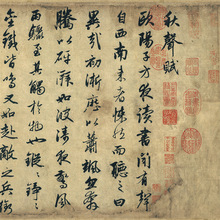 秋聲賦
歐陽子方夜讀書聞有聲
自西南來者悚然而聽之曰
異哉初淅瀝以蕭颯忽奔
騰以砰湃如波濤夜驚風
雨驟至其觸於物也鏦〻錚〻
金鐵皆鳴又如赴敵之兵銜